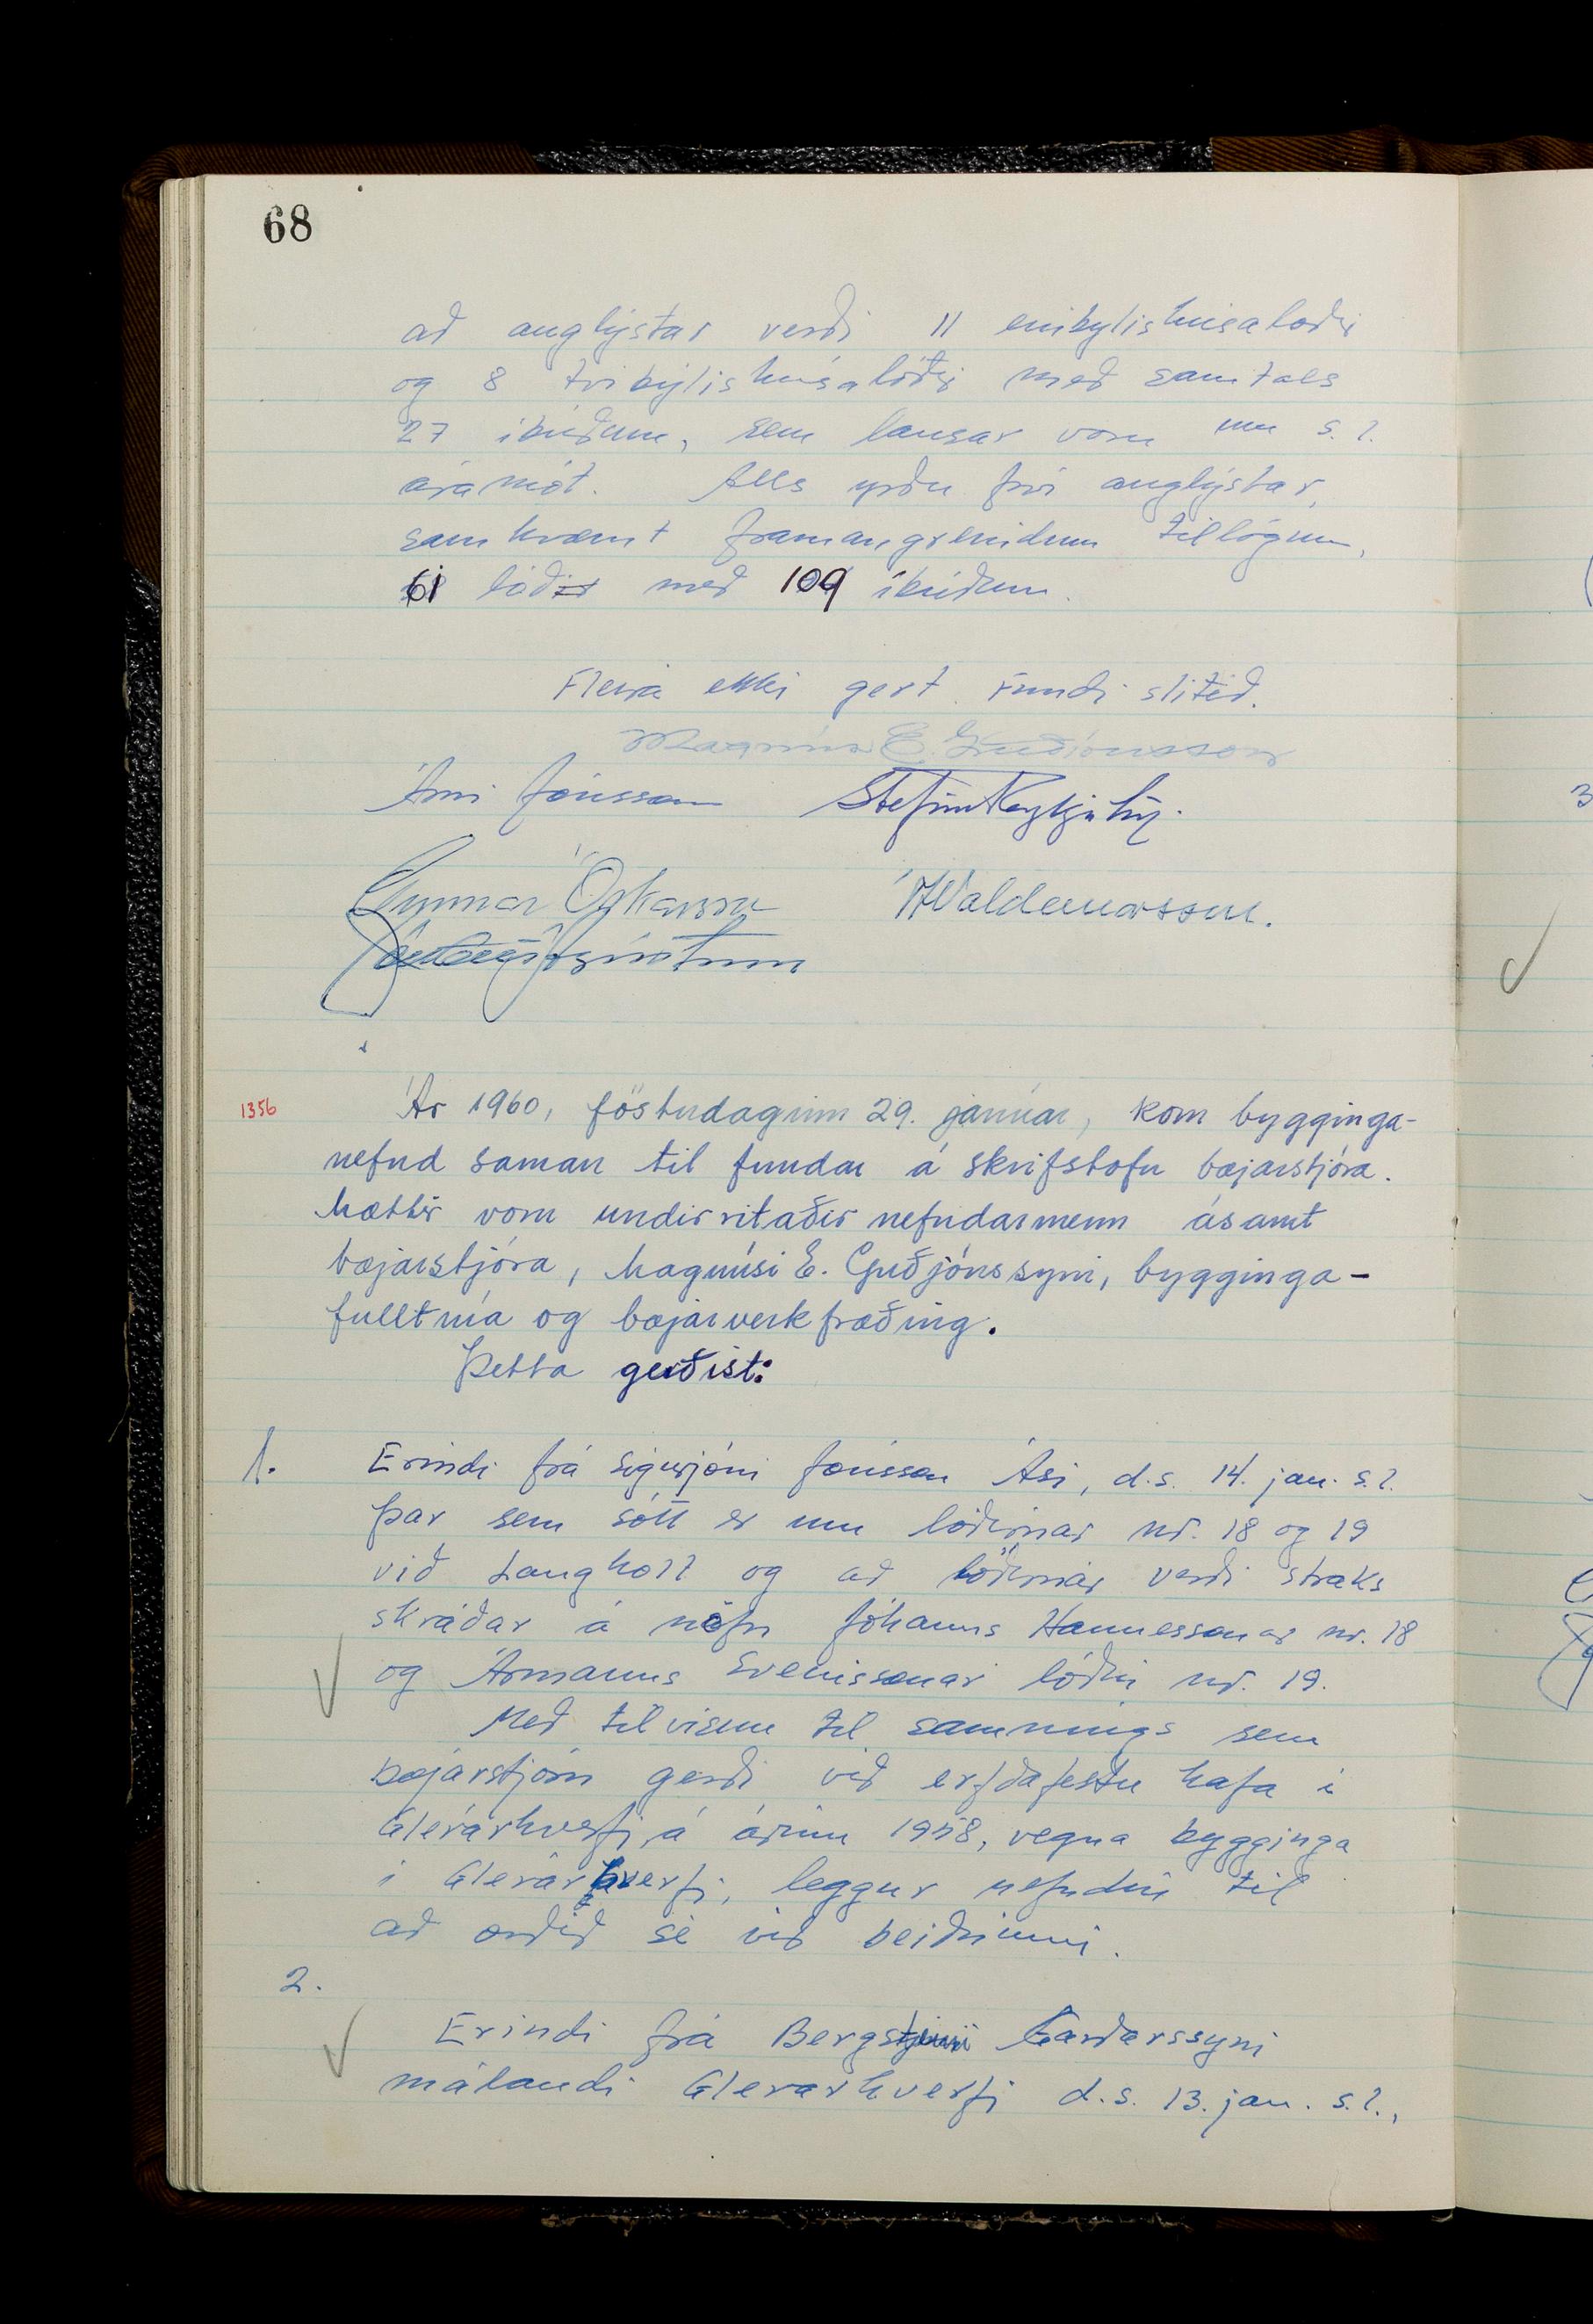 68
að auglýstar verði 11 einbylishúsalóðir
og 8 tvíbýlishúsalóðir með samtals
27 íbúðum, sem lausar voru um s.l.
áramót. Alls yrðu því auglýstar,
samkvæmt framangreindum tillögum,
61 lóðir með 109 íbúðum.
Fleira ekki gert. Fundi slitið.
Magnús E. Guðjónsson
Árni Jónsson Stefán Reykjalín.
Gunnar Óskarsson
1356 Ár 1960, föstudaginn 29. janúar, kom bygginga-
nefnd saman til fundar á skrifstofu bæjarstjóra.
Mættir voru undirritaðir nefndarmenn ásamt
bæjarstjóra, Magnúsi E. Guðjónssyni, bygginga-
fulltrúa og bæjarverkfræðing.
Þetta gerðist:
1. Erindi frá Sigurjóni Jónsson Ási, d.s. 14. jan. s.l.
þar sem sótt er um lóðirnar nr. 18 og 19
við Langholt og að lóðirnar verði straks
skráðar á nöfn Jóhanns Hannessonar nr. 18
og Ármanns Sveinssonar lóðin nr. 19.
Með tilvisun til samnings sem
bæjarstjórn gerði við erfðafestu hafa í
Glerárhverfi, á árinu 1958, vegna bygginga
í Glerárhverfi, leggur nefndin til
að orðið sé við beiðninni.
2.
Erindi frá Bergsteini Garðarssyni
málandi Glerárhverfi d.s. 13. jan. s.l.,